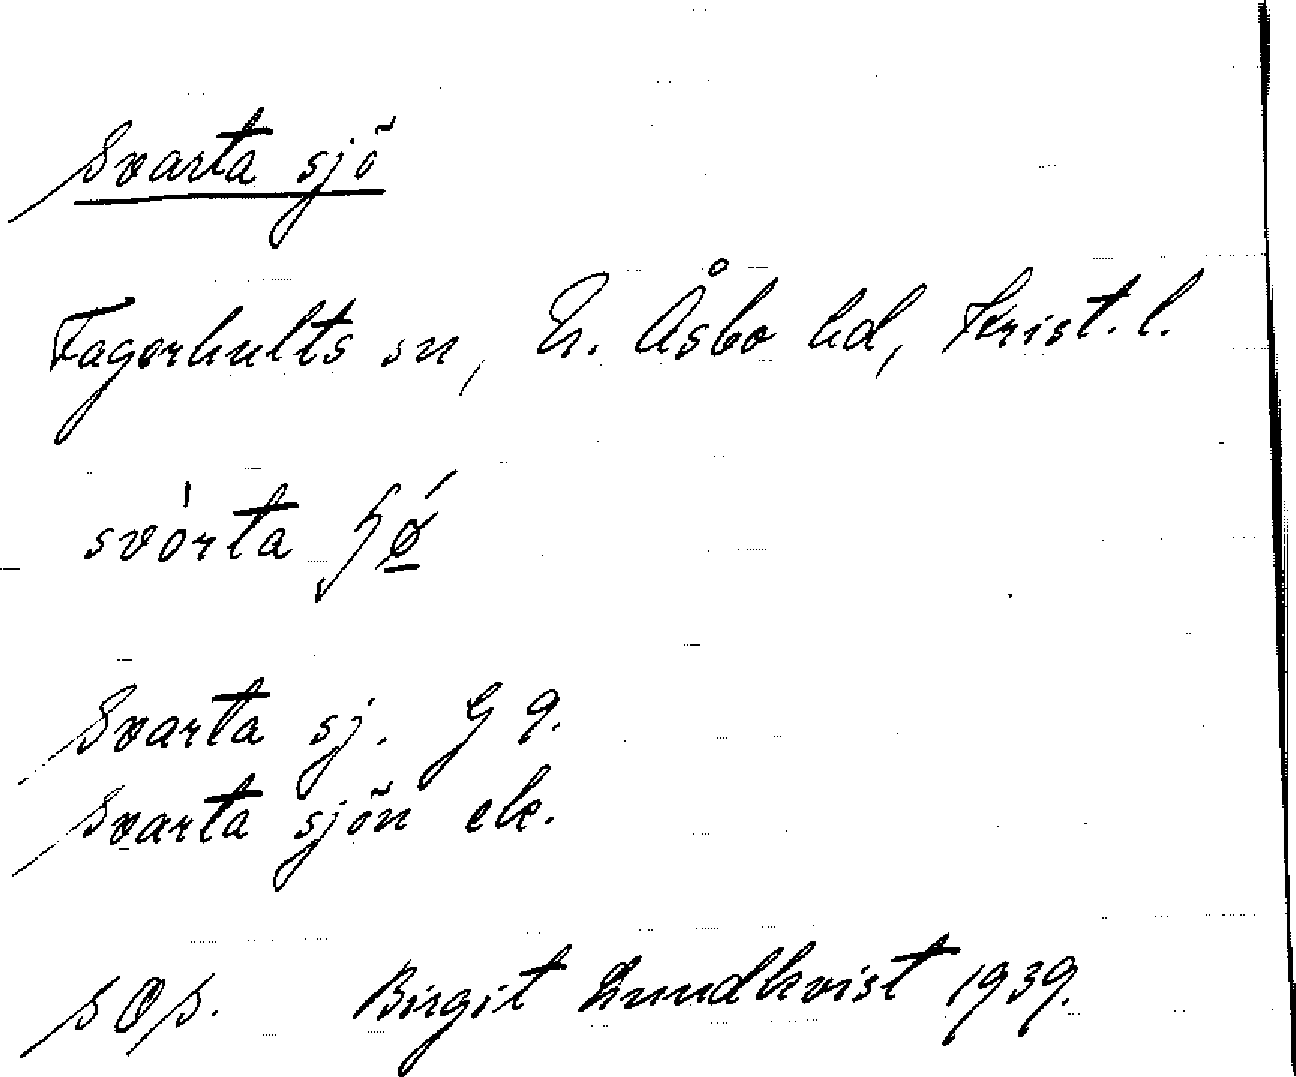 Svarta sjö
Fagerhults sn, N. Åsbo hd, Krist. l.
svórta
Svarta sj. G 9.
Svarta sjön ek.
SOS. Birgit Lundkvist 1939.